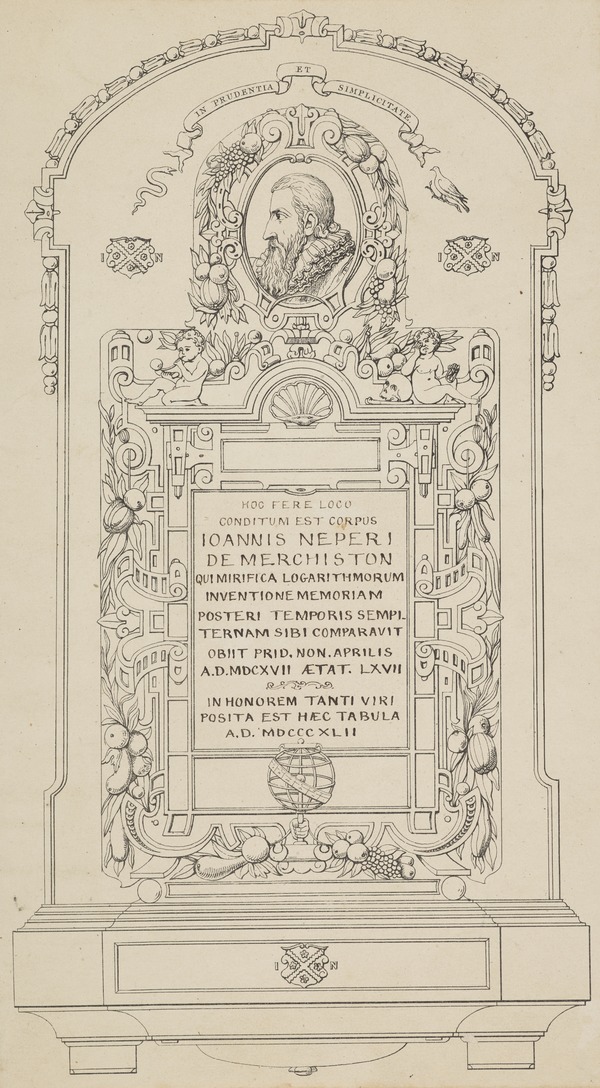 IN PRUDENTIA ET SIMPLICITATE
I N
I N
HOC FERE LOCO
CONDITUM EST CORPUS
IOANNIS NEPERI
DE MERCHISTON
QUI MIRIFICA LOGARITHMORUM
INVENTIONE MEMORIAM
POSTERI TEMPORIS SEMPI-
TERNAM SIBI COMPARAVIT
OBIIT PRID. NON. APRILIS
A.D. MDCXVII ÆTAT. LXVII
IN HONOREM TANTI VIRI
POSITA EST HÆC TABULA
A.D. MDCCCXLII
I N